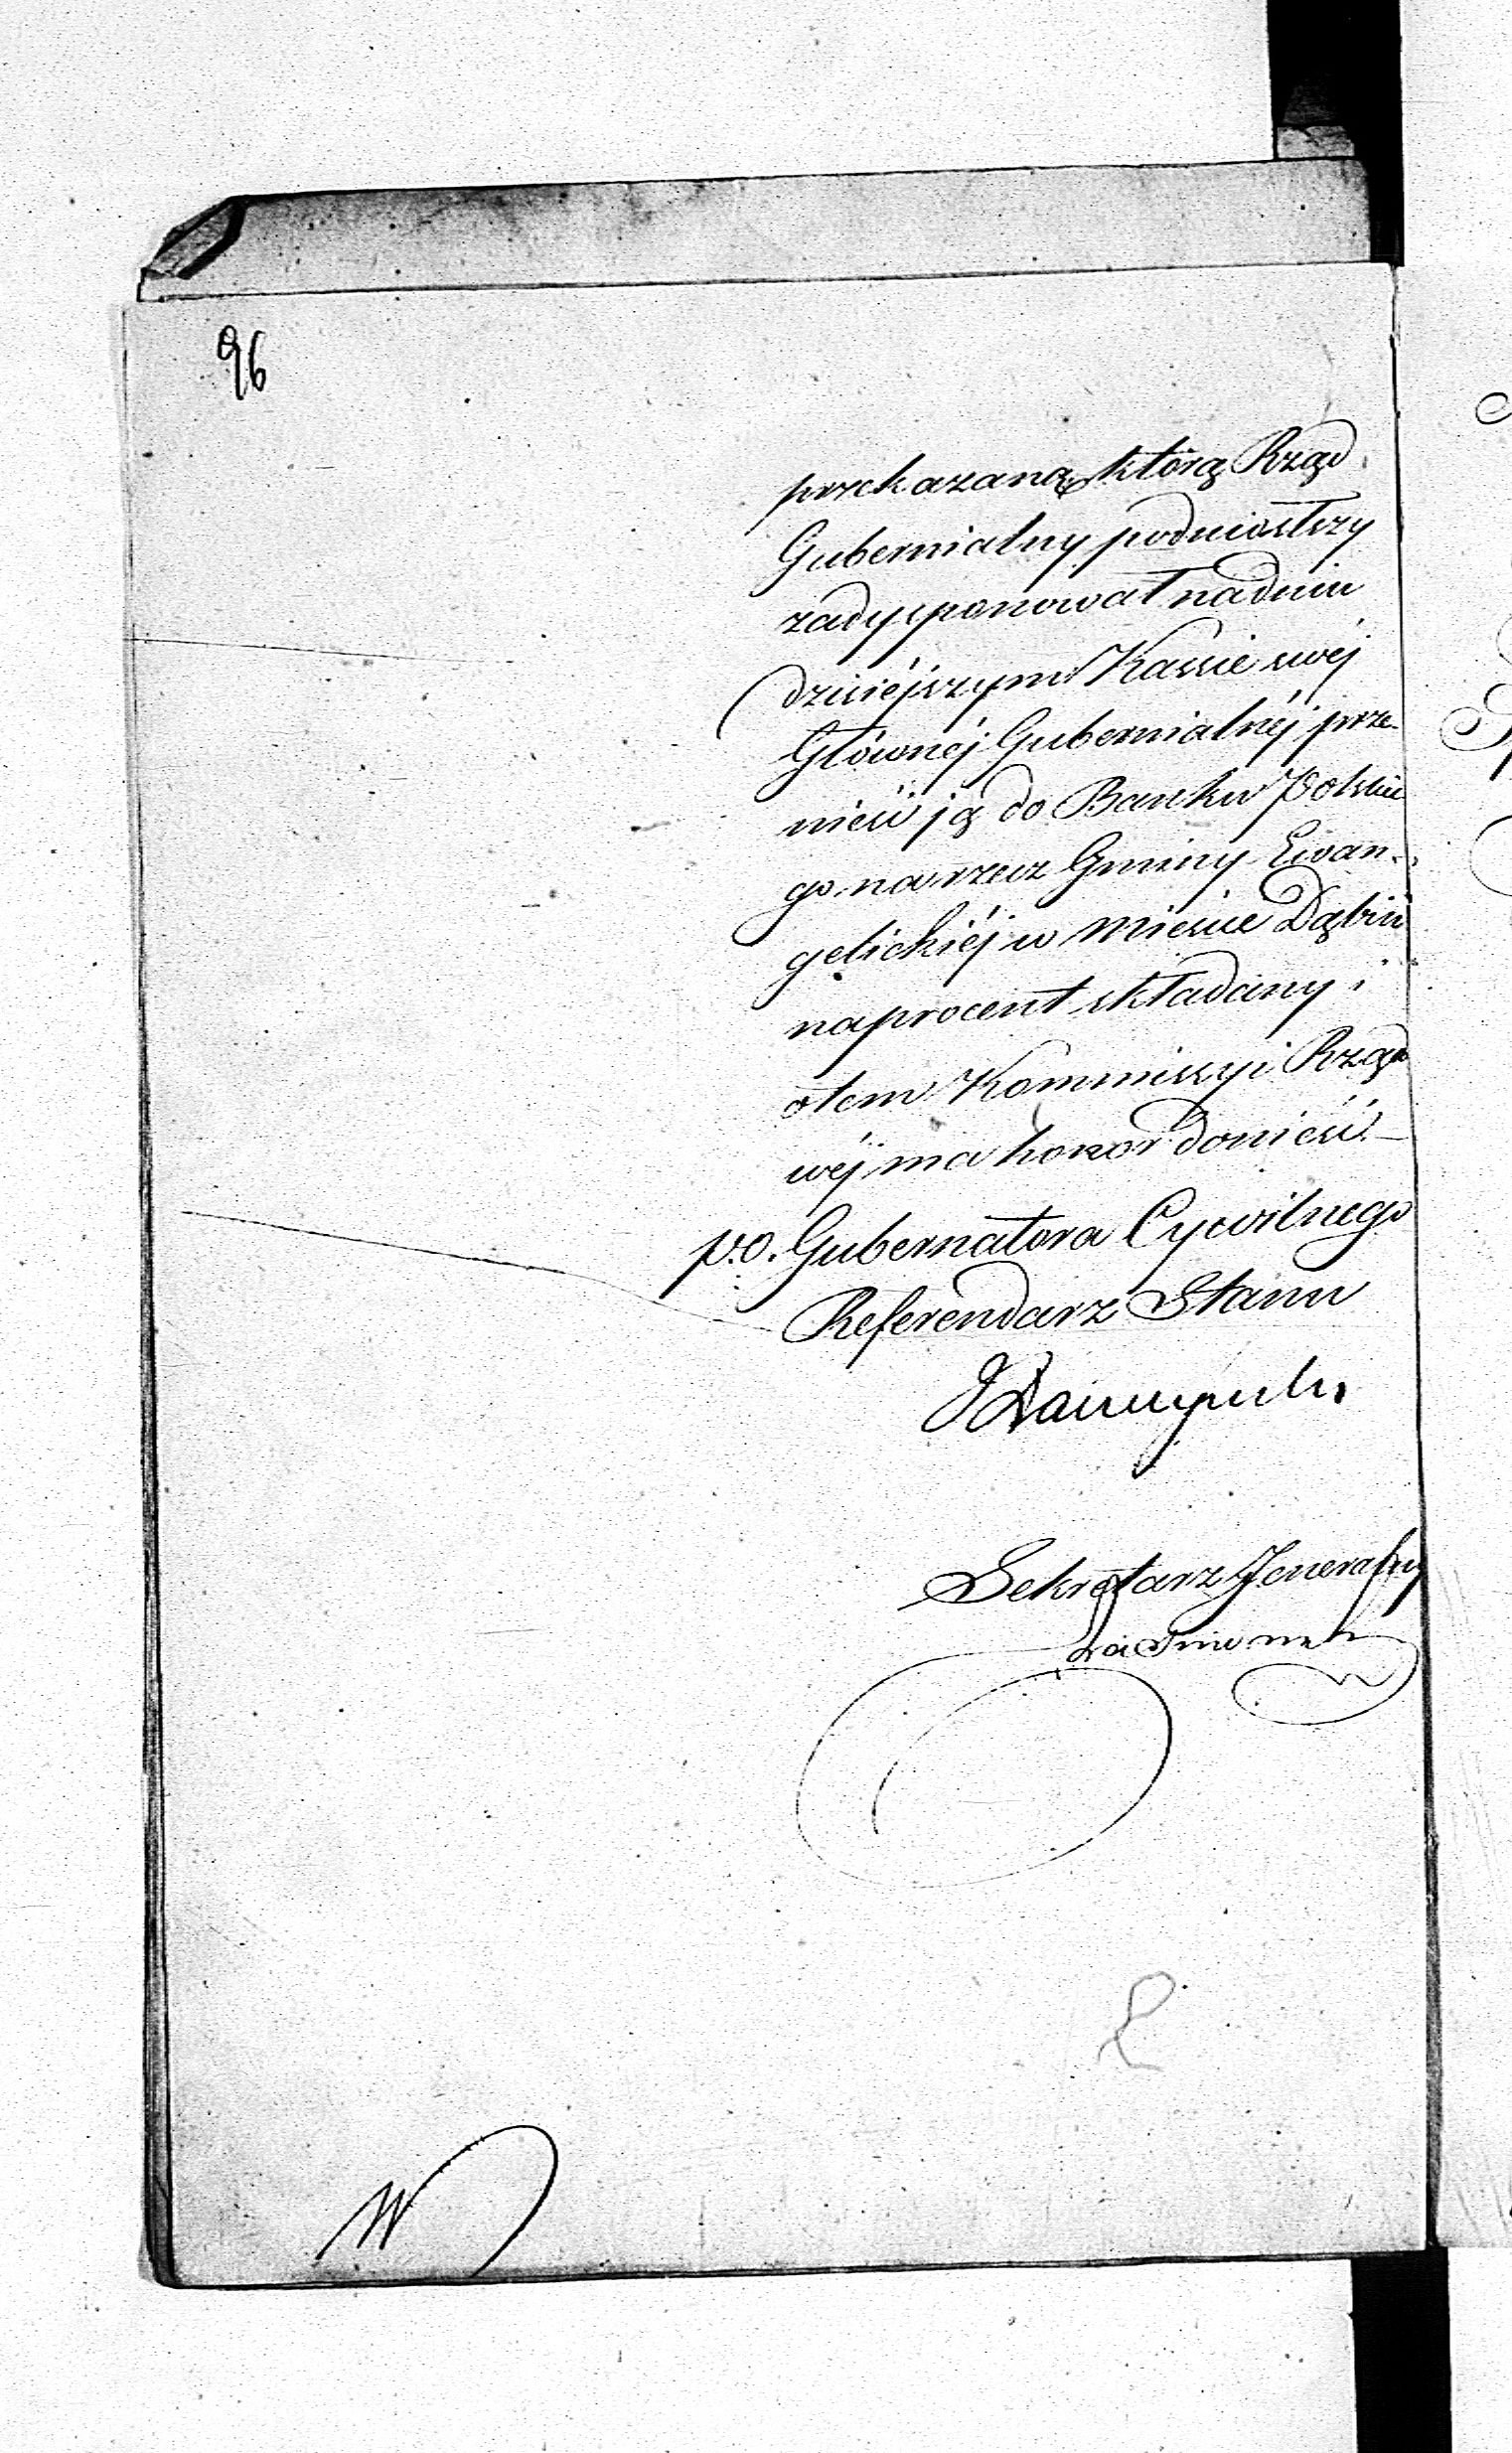 96
przekazaną, którą Rząd
Gubernialny podniosłszy
zadysponował na dniu
dzisiéjszym Kassie swéj
Głównéj Gubernialnéj prze-
nieść ją do Banku Polskie
go na rzecz Gminy Ewan-
gelickiéj w mieście Dąbiu
na procent składany i
o tem Kommissyi Rządo
wéj ma honor donieść. —
p.o. Gubernatora Cywilnego
Referendarz Stanu
Sekretarz Jeneralny